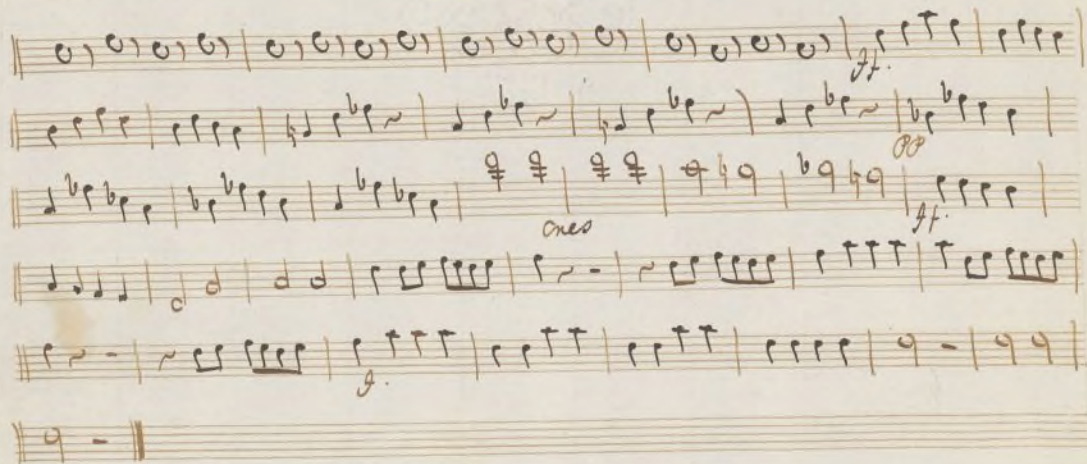 ff.
pp
cres
ff.
f.